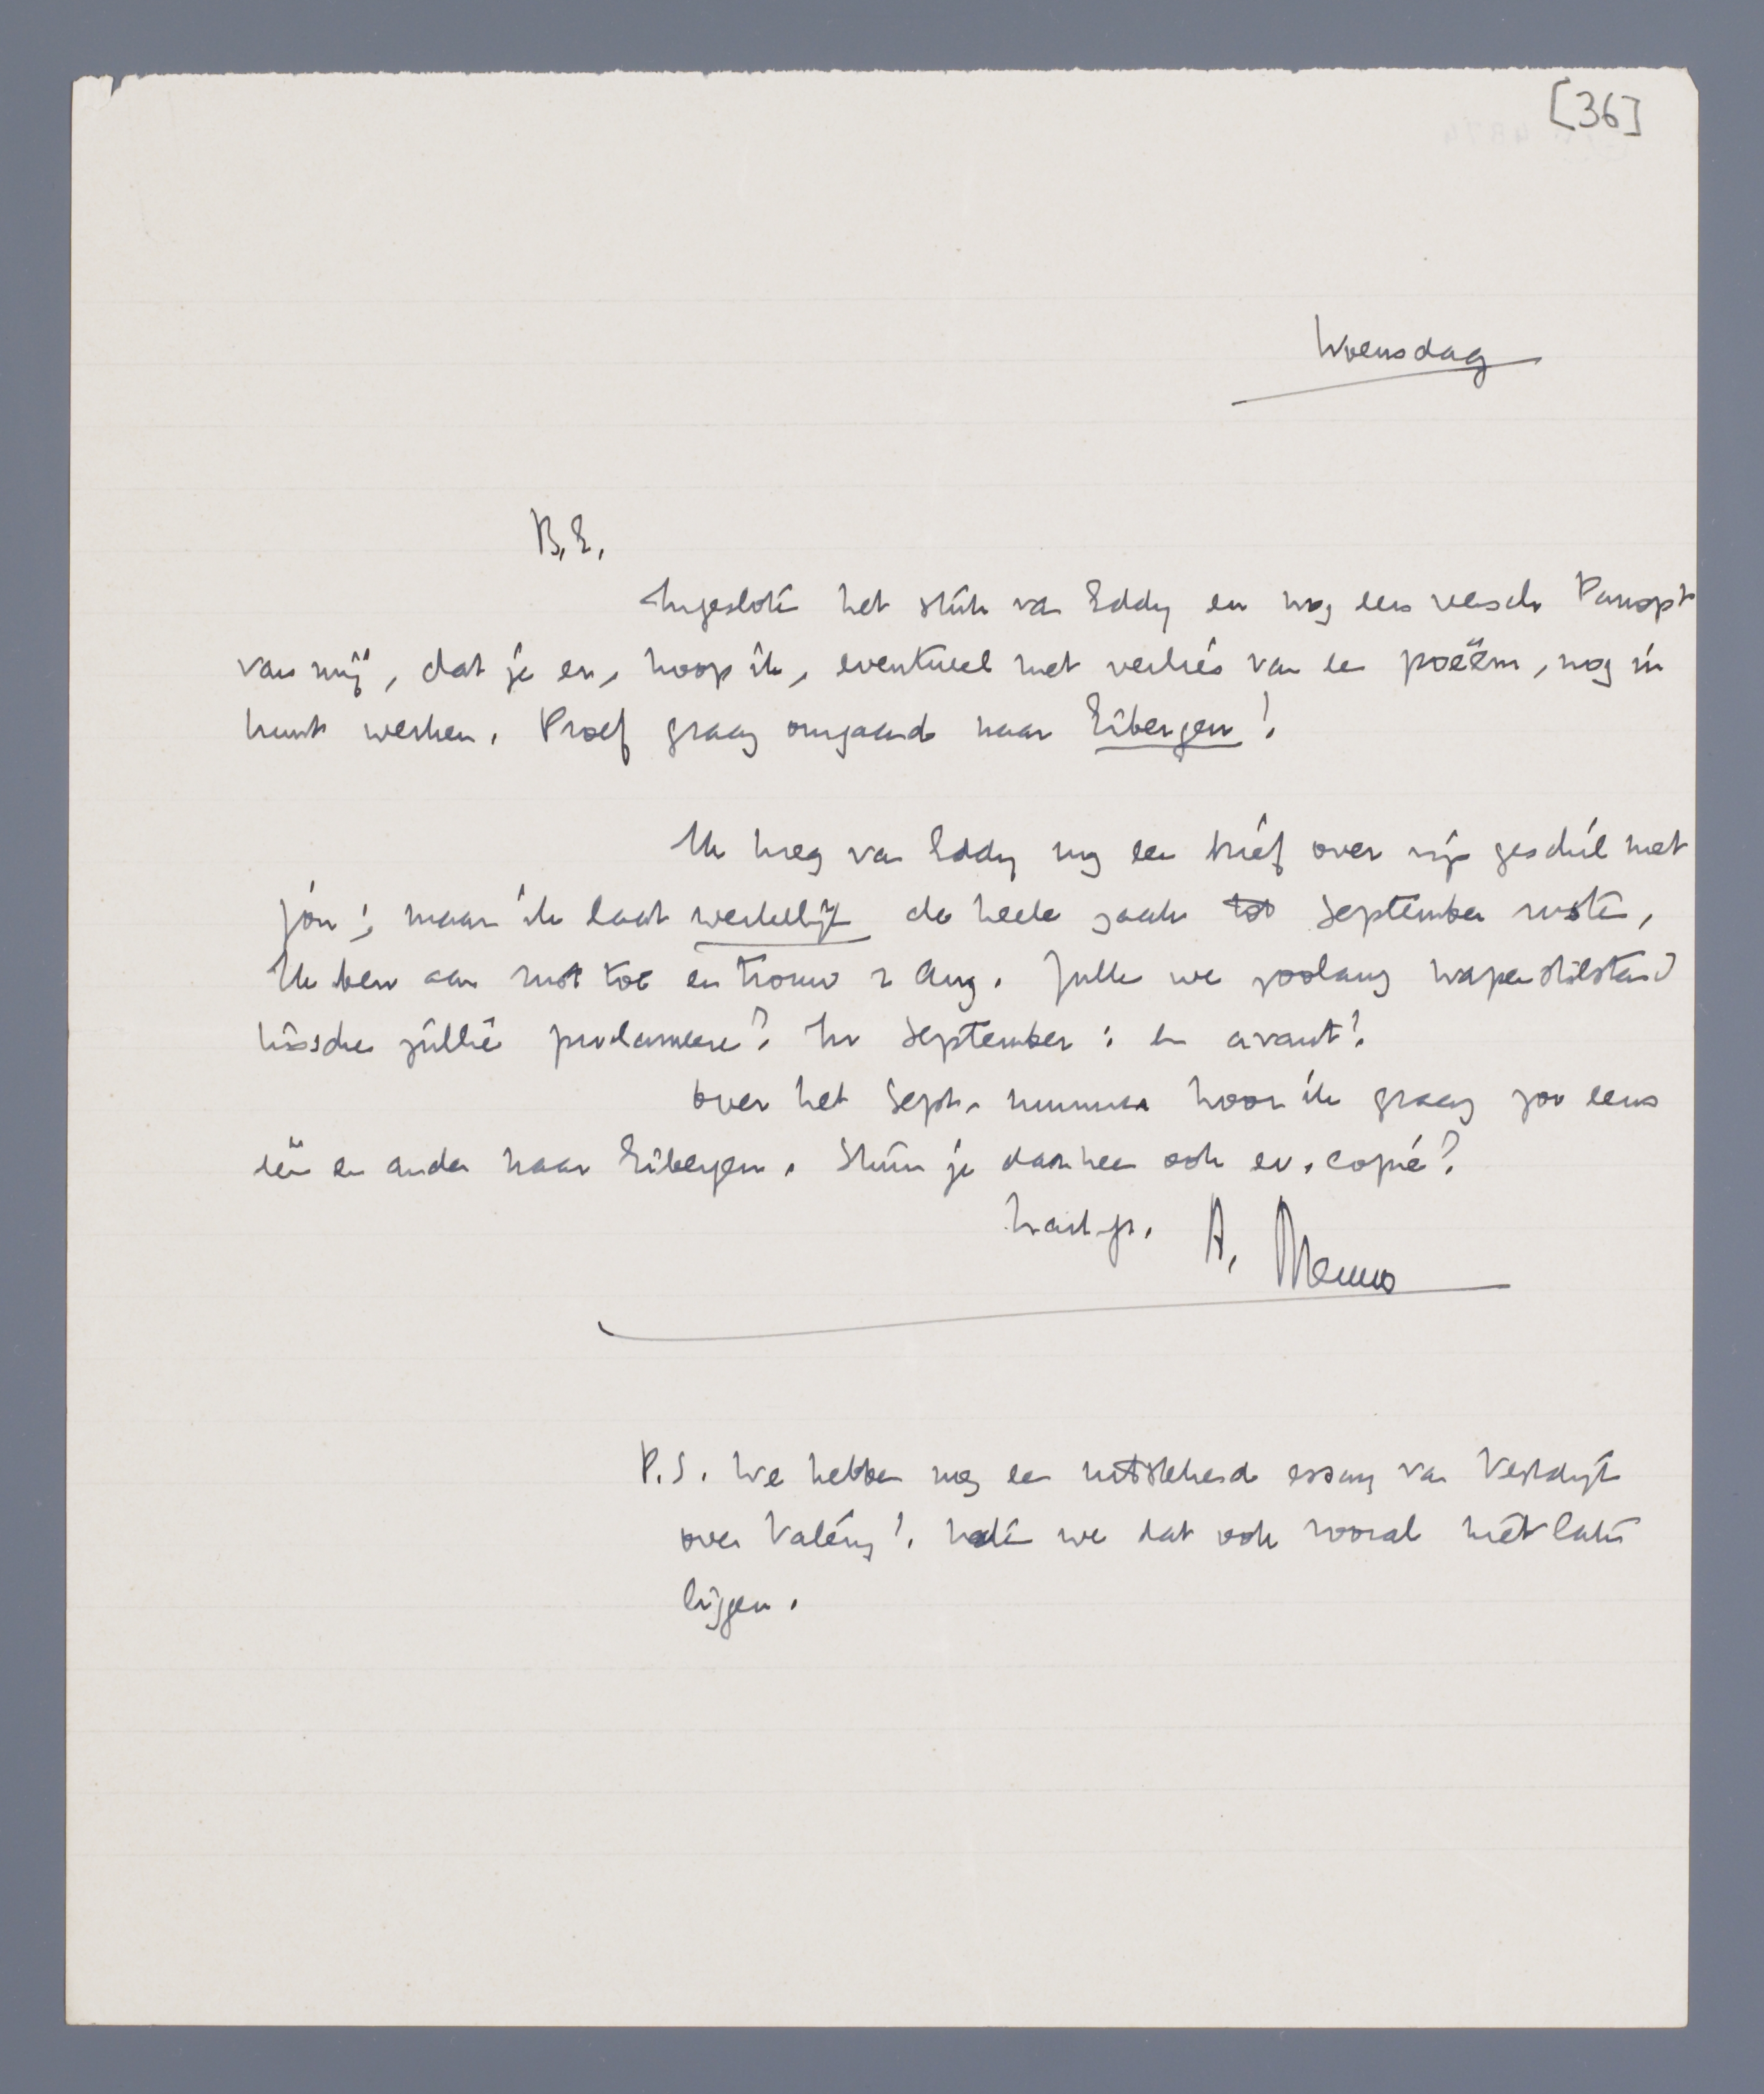 [36]
Woensdag
B.E.
Ingesloten het stuk van Eddy en nog een versch Panopt.
van mij, dat je er, hoop ik, eventueel met verlies van een poëem, nog in
kunt werken. Proef graag omgaand naar Eibergen!
Ik kreeg van Eddy nog een brief over zijn geschil met
jou; maar ik laat werkelijk de heele zaak tot September rusten,
Ik ben aan rust toe en trouw 2 Aug. Zullen we zoolang wapenstilstand
tusschen jullie proclameeren? In September: en avant!
Over het Sept. nummer hoor ik graag zoo eens
een en ander naar Eibergen. Stuur je daarheen ook ev. copie?
hart. gr. A. Menno
P.S. We hebben nog een uitstekend essay van Vestdijk
over Valéry! Laten we dat ook vooral niet laten
liggen.